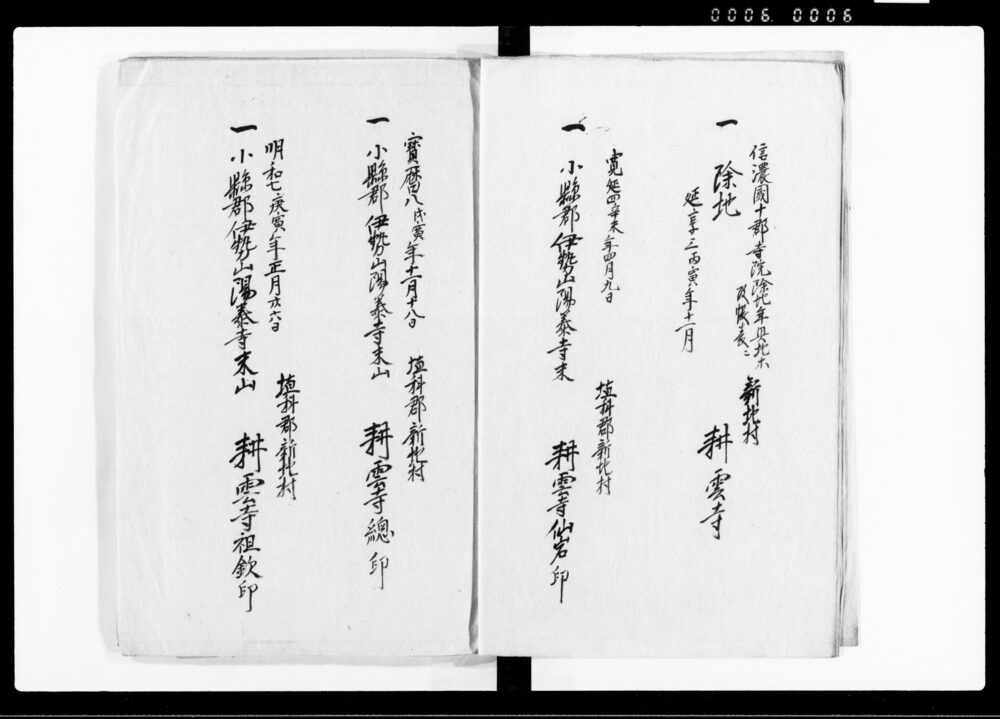 0006. 0006
信濃國十郡寺院除地年貢地木
改帳表ニ
一 除地 新地村 耕雲寺
延享三丙寅年十一月
寛延四辛未年四月九日
埴科郡新地村
一 小縣郡伊勢山陽泰寺末 耕雲寺仙岩印
寶暦八戊寅年十一月十八日
埴科郡新地村
一 小縣郡伊勢山陽泰寺末山 耕雲寺總印
明和七庚寅年正月廿六日
埴科郡新地村
一 小縣郡伊勢山陽泰寺末山 耕雲寺祖欽印